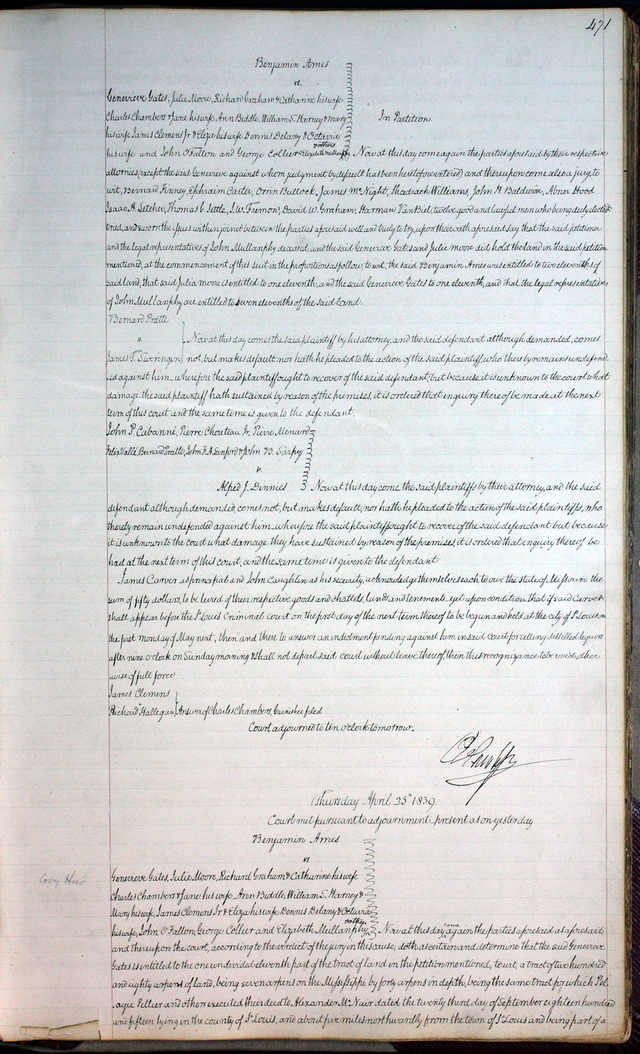 471
Benjamin Ames
vs.
Genevieve Gates, Julie Moore, Richard Graham & Catharine his wife
Charles Chambers & Jane his wife, Ann Biddle, William S. Harney & Mary In Partition
his wife James Clemens Jr & Eliza his wife Dennis Delany & Octavia
his wife and John O'Fallon and George Collier & others Elizabeth Mullanphy Now at this day come again the parties aforesaid by their respective
attornies, except the said Genevieve against whom judgment by default has been heretofore entered, and thereupon come also a jury to
wit, Bernard Finney, Ephraim Carter, Orrin Bullock, James McNight, Shadrach Williams, John H. Baldwin, Abner Hood
Isaac A. Letcher, Thomas G. Settle, J. W. Fremon, David W. Graham, Harman Van Biel, twelve good and lawful men who being duly elected
tried, and sworn the issues within joined between the parties aforesaid well and truly to try, upon their oath aforesaid say that the said petitioner
and the legal representatives of John Mullanphy deceased, and the said Genevieve Gates and Julie Moore did hold the land in the said petition
mentioned, at the commencement of this suit in the proportions as follow, to wit, the said Benjamin Ames was entitled to two elevenths of
said land, that said Julia Moore is entitled to one eleventh, and the said Genevieve Gates to one eleventh, and that the legal representatives
of John Mullanphy are entitled to seven elevenths of the said land.
Bernard Pratte
"
Now at this day comes the said plaintiff by his attorney, and the said defendant although demanded, comes
James T. Sweringen not, but makes default nor hath he pleaded to the action of the said plaintiff, who thereby remains undefend
ed against him, wherefore the said plaintiff ought to recover of the said defendant; but because it is unknown to the court what
damage the said plaintiff hath sustained by reason of the premises, it is ordered that enquiry thereof be made at the next
term of this court and the same time is given to the defendant.
John P. Cabanné, Pierre Chouteau Jr, Pierre Menard
Felix Vallé Bernard Pratte, John F. A. Sanford & John B. Sarpy
"
Alfred J. Dinnies Now at this day come the said plaintiffs by their attorney, and the said
defendant although demanded, comes not, but makes default, nor hath he pleaded to the action of the said plaintiffs, who
thereby remain undefended against him, wherefore the said plaintiffs ought to recover of the said defendant but because
it is unknown to the court what damage they have sustained by reason of the premises, it is ordered that enquiry thereof be
had at the next term of this court, and the same time is given to the defendant
James Carver as principal and John Caughlin as his security, acknowledge themselves each to owe the state of Missouri the
sum of fifty dollars, to be levied of their respective goods and chattels, lands and tenements, yet upon condition that if said Carver
shall appear before the St Louis Criminal Court on the first day of the next term thereof to be begun and held at the city of St Louis on
the first monday of May next, then and there to answer an indictment pending against him in said court for selling distilled liquors
after nine o'clock on Sunday morning & shall not depart said court without leave thereof, then this recognizance to be void, other
wise of full force
James Clemens
"
Richard Hallegan Answer of Charles Chambers, Garnishee filed
Court adjourned to ten o'clock tomorrow.
Thursday April 25th 1839.
Court met pursuant to adjournment - present as on yesterday
Benjamin Ames
vs
Genevieve Gates, Julie Moore, Richard Graham & Catharine his wife
Charles Chambers & Jane his wife, Ann Biddle, William S. Harney &
Mary his wife, James Clemens Jr & Eliza his wife Dennis Delany & Octavia
his wife, John O'Fallon, George Collier and others Elizabeth Mullanphy Now at this day come again the parties aforesaid as aforesaid
and thereupon the court, according to the verdict of the jury in this cause, doth ascertain and determine that the said Genevieve
Gates is entitled to the one undivided eleventh part of the tract of land in the petition mentioned, to wit, a tract of two hundred
and eighty arpens of land, being seven arpens on the Mississippi by forty arpens in depth, being the same tract for which Pel
agie Vellier and others executed their deed to Alexander McNair dated the twenty third day of September eighteen hundred
and fifteen lying in the county of St Louis, and about five miles northwardly from the town of St Louis and being part of a